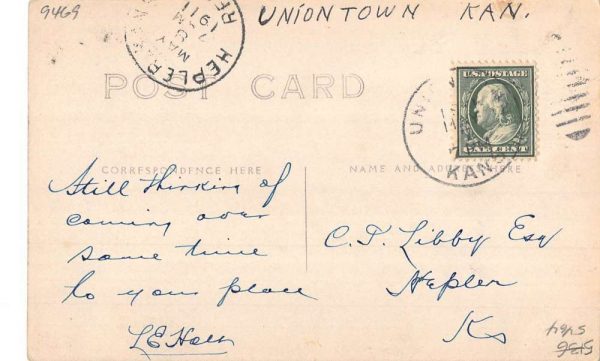 9469
UNIONTOWN KAN.
HEPLER
MAY
8
1911
REC
POST CARD
U.S. POSTAGE
ONE CENT
UNIO
KANS
CORRESPONDENCE HERE
NAME AND ADDRESS HERE
Still thinking of
coming over
some time
to your place
C. T. Libby Esq
Hepler
Ks